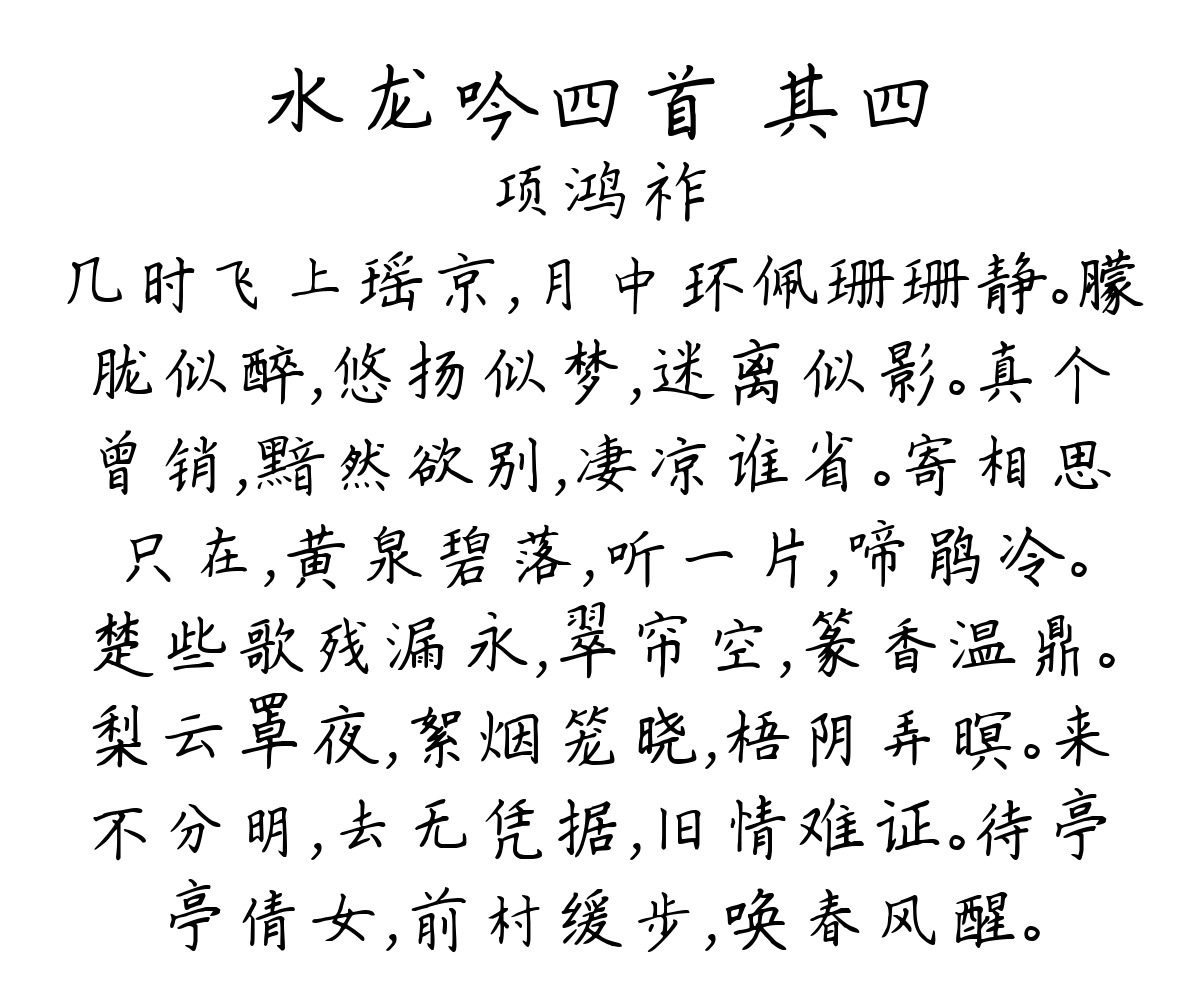 水龙吟四首 其四
项鸿祚
几时飞上瑶京,月中环佩珊珊静。朦
胧似醉,悠扬似梦,迷离似影。真个
曾销,黯然欲别,凄凉谁省。寄相思
只在,黄泉碧落,听一片,啼鹃冷。
楚些歌残漏永,翠帘空,篆香温鼎。
梨云罩夜,絮烟笼晓,梧阴弄暝。来
不分明,去无凭据,旧情难证。待亭
亭倩女,前村缓步,唤春风醒。